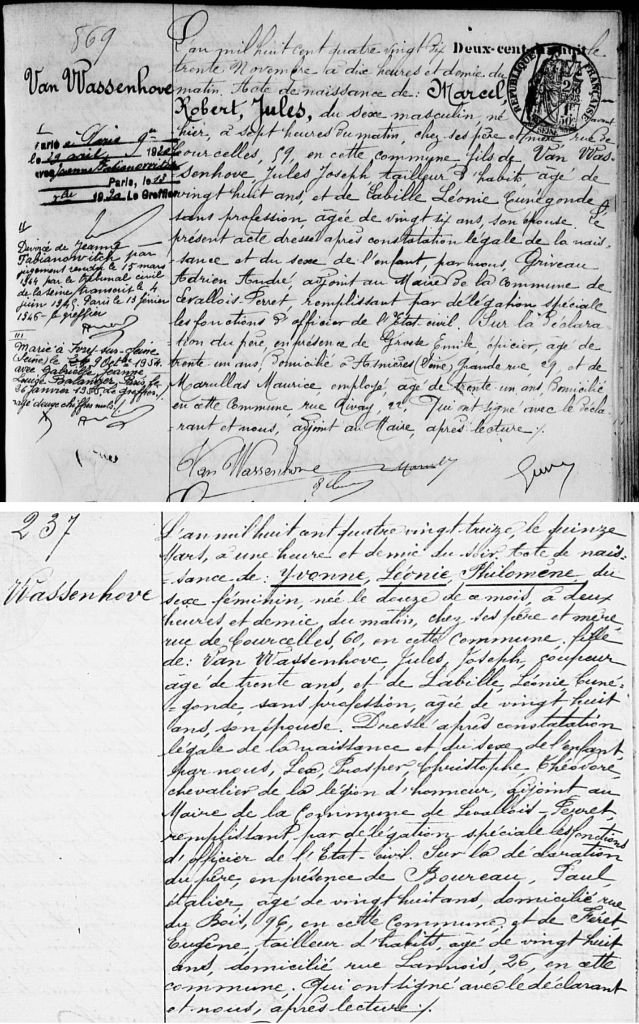 869
Van Wassenhove
L'an mil huit cent quatre vingt dix le
Deux-cent
trente Novembre à dix heures et demie du
matin. Acte de naissance de: Marcel,
Robert, Jules, du sexe masculin, né
hier, à sept heures du matin, chez ses père et mère rue de
Courcelles, 59, en cette commune, fils de Van Was-
senhove, Jules Joseph tailleur d'habits, âgé de
vingt huit ans, et de Labille Léonie Cunégonde,
sans profession, âgée de vingt six ans, son épouse. Le
présent acte dressé après constatation légale de la nais-
sance et du sexe de l'enfant, par nous, Griveau
Adrien André, adjoint au Maire de la commune de
Levallois-Perret, remplissant par délégation spéciale
les fonctions d'officier de l'Etat civil. Sur la déclara-
ration du père, en présence de Emile épicier, âgé de
trente un ans, domicilié à Asnières (Seine) Grande rue, 29, et de
Marullas Maurice employé, âgé de trente un ans, domicilié
en cette Commune, rue Rivay, 22, Qui ont signé avec le décla-
rant et nous, adjoint au Maire, après lecture ./.
RÉPUBLIQUE FRANÇAISE
Paris
Le 29 avril 1920
avec Jeanne Fabianowitch
Paris, le
Le Greffier
II
Divorcé de Jeanne
Fabianowitch par
jugement rendu le 15 mars
1944 par le tribunal civil
de la Seine transcrit le 4
juin 1945. Paris le 13 février
1946 - le greffier
III
Marié à Ivry-sur-Seine
(Seine) le 9 Octobre 1954
avec Gabrielle Jeanne
Louise Boulanger Paris le
6 janvier 1955. Le greffier
rayé deux chiffres nuls
Van Wassenhove
237
Wassenhove
L'an mil huit cent quatre vingt-treize, le quinze
Mars, à une heure et demie du soir. Acte de nais-
sance de: Yvonne, Léonie, Philomène, du
sexe féminin, née le douze de ce mois, à deux
heures et demie, du matin, chez ses père et mère
rue de Courcelles, 60, en cette commune, fille
de: Van Wassenhove, Jules, Joseph, coupeur
âgé de trente ans, et de Labille, Léonie, Cuné-
gonde, sans profession, âgée de vingt huit
ans, son épouse. Dressé après constatation
légale de la naissance et du sexe, de l'enfant,
par nous, Lex, Prosper, Christophe Théodore,
chevalier de la légion d'honneur, adjoint au
Maire de la Commune de Levallois-Perret,
remplissant, par délégation spéciale les fonctions
d'officier de l'Etat-Civil. Sur la déclaration
du père, en présence de Boureau, Paul,
étalier, âgé de vingt huit ans, domicilié rue
du Bois, 96, en cette commune, et de Feret,
Eugène, tailleur d'habits, âgé de vingt huit
ans, domicilié rue Lannois, 26, en cette
commune. Qui ont signé avec le déclarant
et nous, après lecture ./.